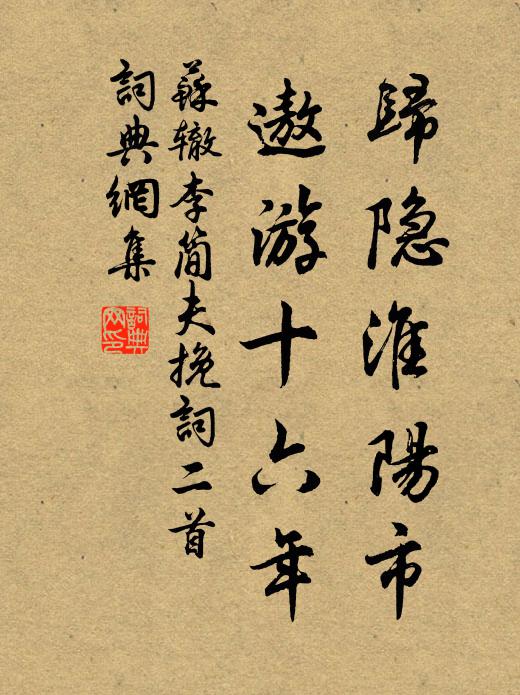 歸隐淮陽市
遨游十六年
蘇辙李简夫挽詞二首
詞典網集
詞典网印